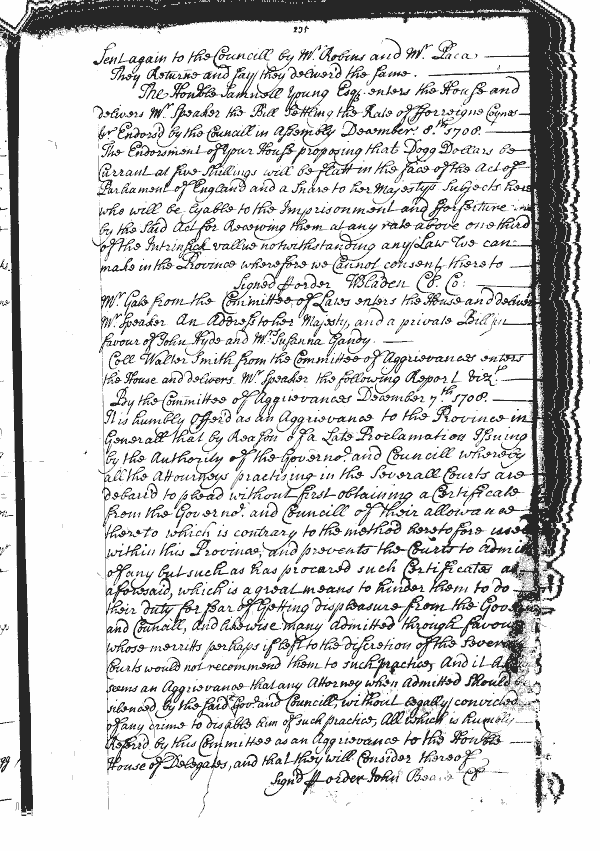 Sent again to the Councill by Mr. Robins and Mr. Paca
They Returne and say they deliverd the same.
The Honble Samuell Young Esqr. enters the House and
delivers Mr. Speaker the Bill Settling the Rate of fforreigne Coynes
Endorsd by the Councill in Assembly December 8th 1708.
The Endorsment of your House proposing that Dogg Dollars be
Currant at five Shillings will be flatt in the face of the Act of
Parliament of England and a Snare to her Majestys Subjects here
who will be lyable to the Imprisonment and fforfeiture
by the said Act for Receiving them at any rate above one third
of the Intrinsick vallue notwithstanding any Law we can
make in the Province wherefore we Cannot consent thereto
Signd p order WBladen Cl. Co:
Mr. Gale from the Committee of Laws enters the House and delivers
Mr. Speaker An Address to her Majesty, and a private Bill in
favour of John Hyde and Mrs. Susanna Gandy.
Coll Walter Smith from the Committee of Aggrievances enters
the House and delivers Mr. Speaker the following Report Vizt.
By the Committee of Aggrievances December 7th 1708.
It is humbly offerd as an Aggrievance to the Province in
Generall that by Reason of a Late Proclamation Issuing
by the Authority of the Governor. and Councill whereby
all the Attourneys practising in the Severall Courts are
debard to plead without first obtaining a Certificate
from the Governor. and Councill of their allowance
thereto which is contrary to the method heretofore used
within this Province, and prevents the Courts to admitt
of any but such as has procured such Certificates as
aforesaid, which is a great means to hinder them to do
their duty for fear of Getting displeasure from the Governor
and Councill, And likewise many admitted through favour
whose merritts perhaps if left to the discretion of the Severall
Courts would not recommend them to such practice, And it
seems an Aggrievance that any Attorney when admitted should be
silenced by the said Govr and Councill, without legally convicted
of any crime to disable him of such practice, All which is humbly
Referd by this Committee as an Aggrievance to the Honble
House of Delegates, and that they will Consider thereof
Signd p order John Beard Cl